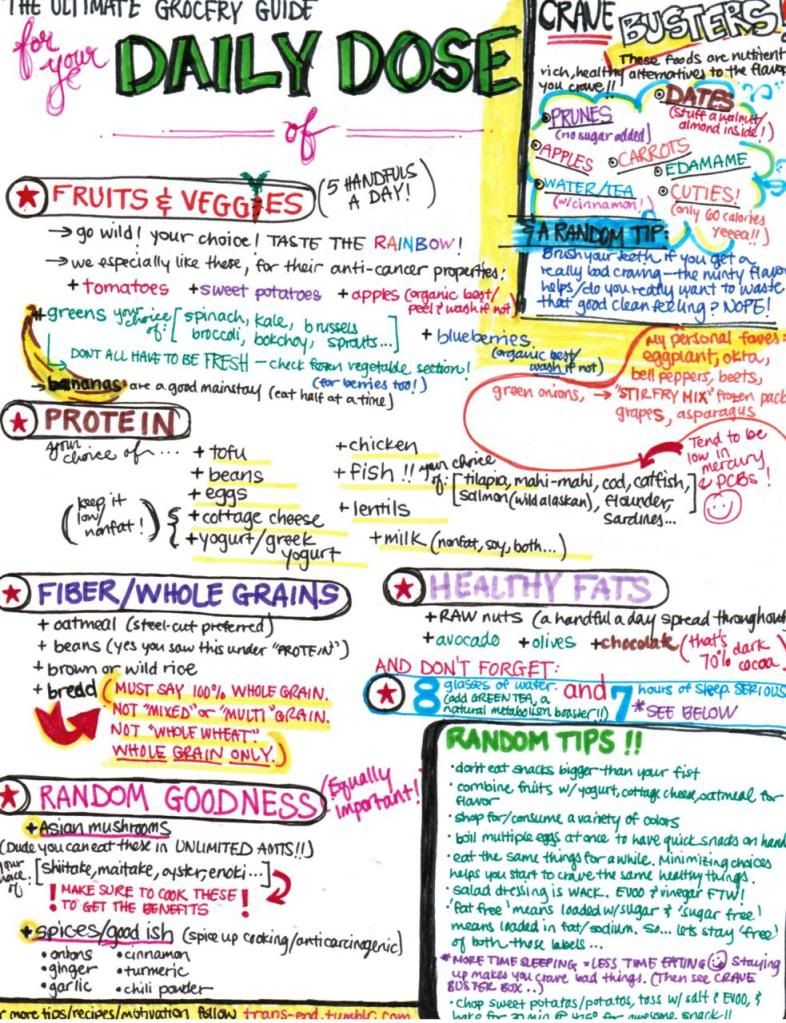 THE ULTIMATE GROCERY GUIDE
for your
DAILY DOSE
of
CRAVE BUSTERS!
These foods are nutrient
rich, healthy alternatives to the flavor
you crave!!
PRUNES
(no sugar added)
DATES
(stuff a walnut/
almond inside!)
APPLES
CARROTS
EDAMAME
WATER/TEA
(w/cinnamon!)
CUTIES!
(only 60 calories
yeeea!!)
& A RANDOM TIP:
Brush your teeth if you get a
really bad craving—the minty flavor
helps/do you really want to waste
that good clean feeling? NOPE!
FRUITS & VEGGIES (5 HANDFULS
A DAY!)
→ go wild! your choice! TASTE THE RAINBOW!
→ we especially like these, for their anti-cancer properties:
+ tomatoes + sweet potatoes + apples (organic best/
peel & wash if not)
+ greens your choice of: [spinach, kale, brussels
broccoli, bokchoy, sprouts...]
+ blueberries
(organic best/
wash if not)
DONT ALL HAVE TO BE FRESH — check frozen vegetable section!
(for berries too!)
→ bananas are a good mainstay (eat half at a time)
My personal faves:
eggplant, okra,
bell peppers, beets,
green onions, → "STIRFRY MIX" frozen pack
grapes, asparagus
PROTEIN
your choice of...
+ tofu
+ beans
+ eggs
+ cottage cheese
+ yogurt/greek
yogurt
(keep it
low/
nonfat!)
+ chicken
+ fish!! your choice
of: [tilapia, mahi-mahi, cod, catfish,
salmon (wild alaskan), flounder,
sardines...]
Tend to be
low in
mercury
& PCBs!
+ lentils
+ milk (nonfat, soy, both...)
FIBER/WHOLE GRAINS
+ oatmeal (steel-cut preferred)
+ beans (yes you saw this under "PROTEIN")
+ brown or wild rice
+ bread (MUST SAY 100% WHOLE GRAIN.
NOT "MIXED" or "MULTI" GRAIN.
NOT "WHOLE WHEAT".
WHOLE GRAIN ONLY.)
HEALTHY FATS
+ RAW nuts (a handful a day spread throughout
+ avocado + olives + chocolate (that's dark
70% cocoa.
AND DON'T FORGET:
8 glasses of water.
(add GREEN TEA, a
natural metabolism booster!!)
and 7 hours of sleep. SERIOUS
*SEE BELOW
RANDOM GOODNESS (Equally
important!)
+ Asian mushrooms
(Dude you can eat these in UNLIMITED AMTS!!)
your
of [shiitake, maitake, oyster, enoki...]
! MAKE SURE TO COOK THESE
TO GET THE BENEFITS !
+ spices/good ish (spice up cooking/anticarcinogenic)
• onions
• ginger
• garlic
• cinnamon
• turmeric
• chili powder
RANDOM TIPS!!
• dont eat snacks bigger than your fist
• combine fruits w/ yogurt, cottage cheese, oatmeal for
flavor
• shop for/consume a variety of colors
• boil multiple eggs at once to have quick snacks on hand
• eat the same things for awhile. Minimizing choices
helps you start to crave the same healthy things.
• salad dressing is WACK. EVOO & vinegar FTW!
• 'fat free' means loaded w/sugar & 'sugar free'
means loaded in fat/sodium. So... lets stay 'free'
of both those labels...
* MORE TIME SLEEPING = LESS TIME EATING Staying
up makes you crave bad things. (Then see CRAVE
BUSTER BOX..)
• chop sweet potatos/potatos, toss w/ salt & EVOO, &
bake for 30 min @ for awesome snack!!
r more tips/recipes/motivation follow trans-end.tumblr.com